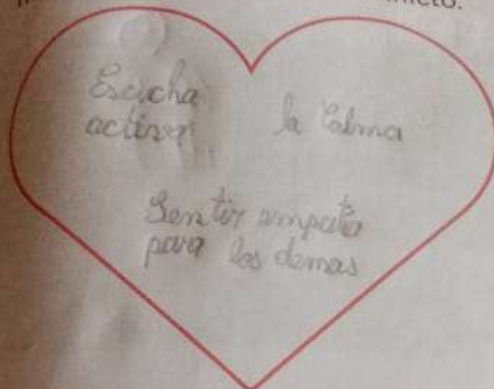 Escucha
activa
la Calma
Sentir empatia
para los demas